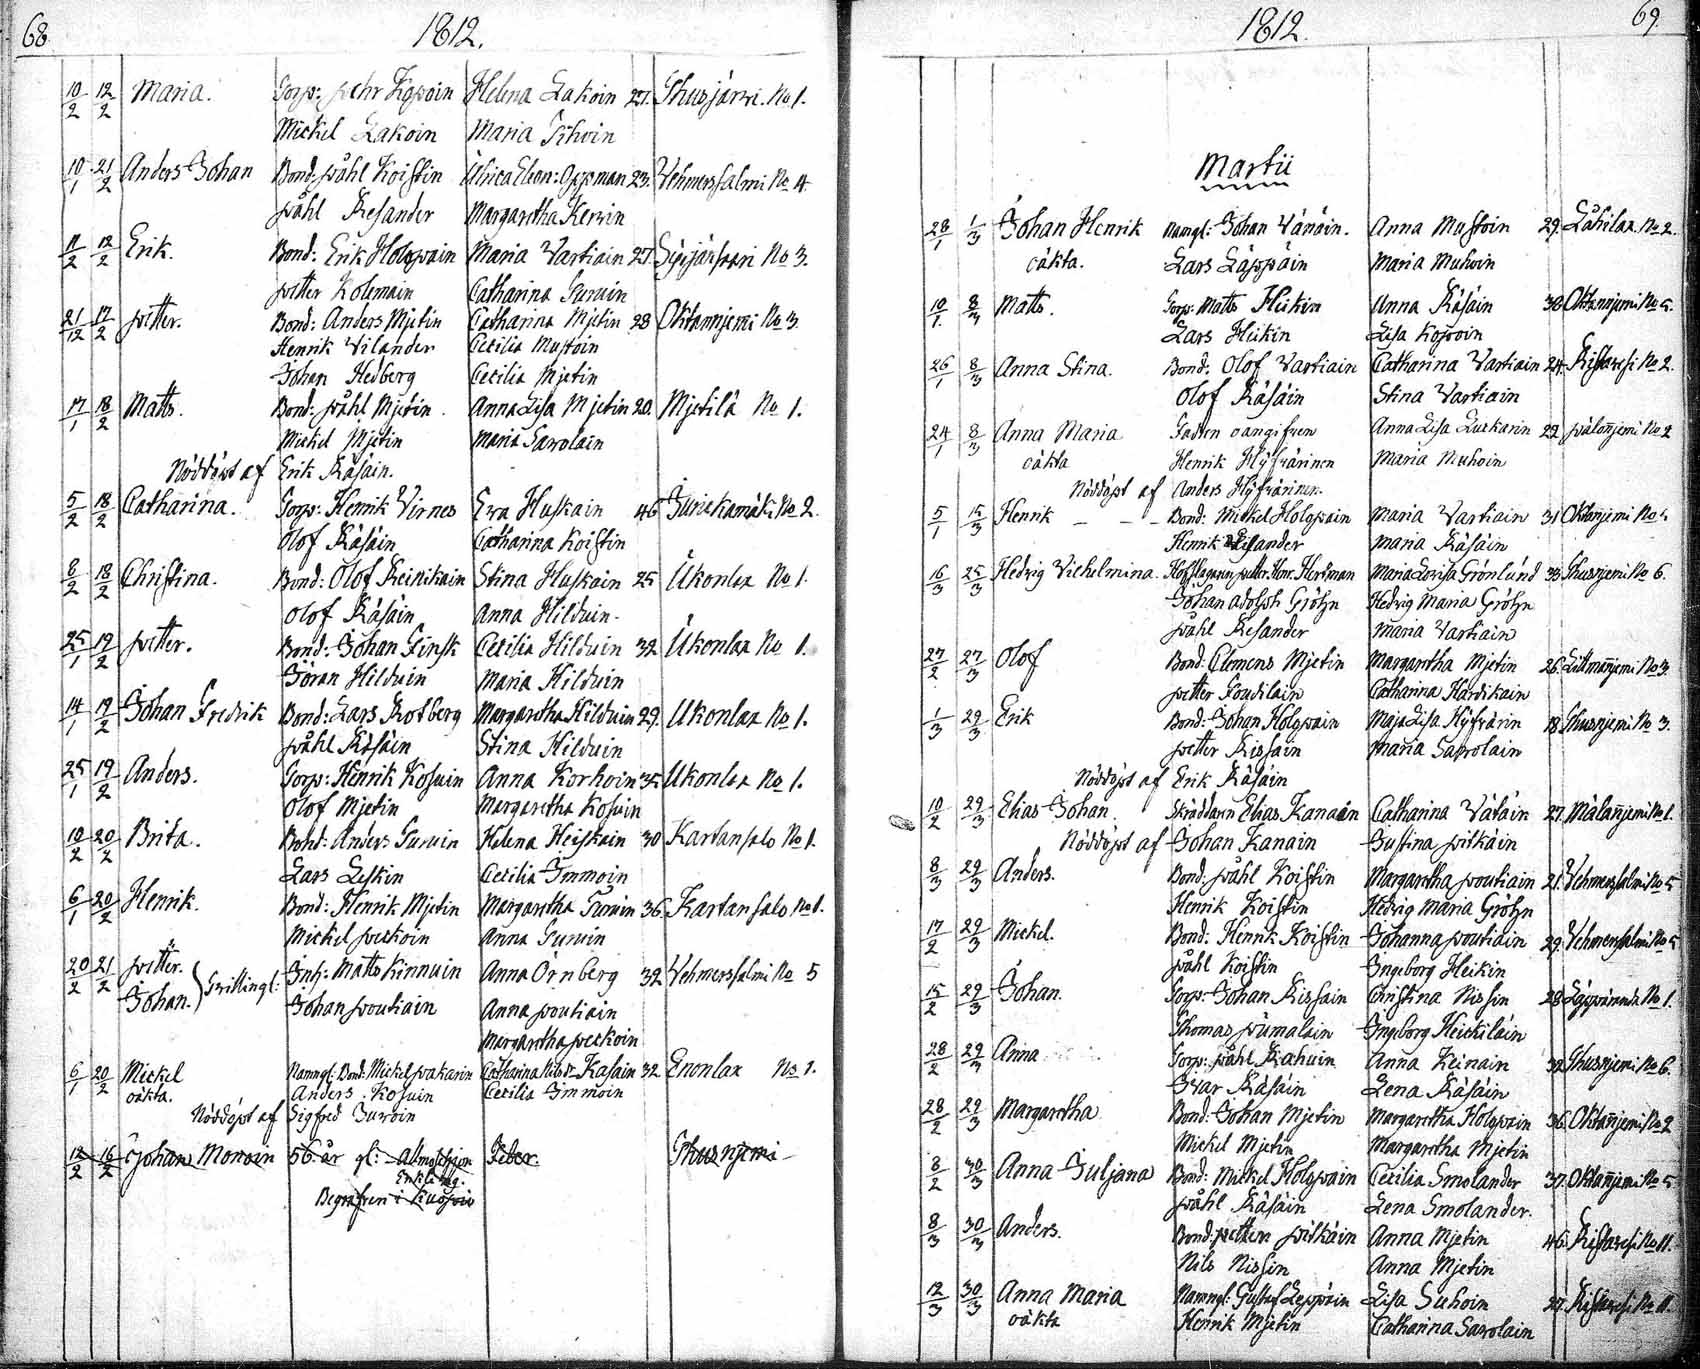 68
1812.
10/2 12/2 Maria. Torp: Petr Helena Lakoin 27. No 1.
Mickel Lakoin Maria
10/1 21/2 Anders Johan Bond: Påhl Koistin Ulrica Eleon: Oppman 23. Vehmersalmi No 4
Påhl Resander Margaretha Kervin
11/2 12/2 Erik. Bond: Erik Holopain Maria Vartiain 27. No 3.
Petter Kolemain Catharina Turuin
21/12 17/2 Petter. Bond: Anders Mjetin Catharina Mjetin 28 No 3.
Henrik Vilander Cecilia Mustoin
Johan Hedberg Cecilia Mjetin
17/1 18/2 Matts. Bond: Påhl Mjetin. Anna Lisa Mjetin 20. Mjetilä No 1.
Mickel Mjetin Maria Savolain
Nöddöpt af Erik Räsäin.
5/2 18/2 Catharina. Torp: Henrik Virnes Eva Huskain 46 Juriekamäki No 2.
Olof Räsäin Catharina Koistin
8/2 18/2 Christina. Bond: Olof Reinikain Stina Huskain 25 Ukonlax No 1.
Olof Räsäin Anna Hilduin.
25/1 19/2 Petter. Bond: Johan Finsk Cecilia Hilduin 32 Ukonlax No 1.
Göran Hilduin Maria Hilduin
14/1 19/2 Johan Fredrik Bond: Lars Rotberg Margaretha Hilduin 29. Ukonlax No 1.
Påhl Räsäin Stina Hilduin
25/1 19/2 Anders. Torp: Henrik Kosuin Anna Korhoin 35 Ukonlax No 1.
Olof Mjetin Margaretha Kosuin
10/2 20/2 Brita. Bond: Anders Turuin Helena Heiskain 30 Kartansalo No 1.
Lars Leskin Cecilia Immoin
6/1 20/2 Henrik. Bond: Henrik Mjetin Margaretha Turuin 36. Kartansalo No 1.
Mickel Peckoin Anna Turuin
20/2 21/2 Petter. Johan. Tvillingl: Inh: Matts Kinnuin Anna Örnberg 32 Vehmersalmi No 5
Johan Poutiain Anna Poutiain
Margaretha Peckoin
6/1 20/2 Mickel Namngl: Bond: Mickel Pakarin Catharina Räsäin 32 Enonlax No 1.
oäkta. Anders Kosuin Cecilia Immoin
Nöddöpt af Sigfred
12/2 16/2 Johan Monoin 56 år gl: Feber.
Enkling.
Begrafven i Kuopio
69
1812.
Martii
28/1 1/3 Johan Henrik Namgl: Johan Vänäin. Anna Mustoin 29. No 2.
oäkta. Lars Läppäin Maria Muhoin
10/1 8/3 Matts. Torp: Matts Heikin Anna Räsäin 38 No 5.
Lars Heikin Lisa Kosvoin
26/1 8/3 Anna Stina. Bond: Olof Vartiain Catharina Vartiain 24. No 2.
Olof Räsäin Stina Vartiain
24/1 8/3 Anna Maria Fadren oangifven Anna Lisa 22 No 2
oäkta Henrik Hyfvärinen Maria Muhoin
Nöddöpt af Anders Hyfvärinen.
5/1 15/3 Henrik - - - Bond: Mickel Holopain Maria Vartiain 31 No
Henrik Maria Räsäin
16/3 25/3 Hedvig Vilhelmina. Maria Lovisa Grönlund 33 No 6.
Johan Adolph Gröhn Hedvig Maria Gröhn
Påhl Resander Maria Vartiain
27/2 27/3 Olof Bond: Clemens Mjetin Margaretha Mjetin 26. No 3.
Petter Toudilain Catharina Hardikain
1/3 29/3 Erik Bond: Johan Holopain Maja Lisa Hyfvärin 18. No 3.
Petter Rissain Maria Savolain
Nöddöpt af Erik Räsäin
10/2 29/3 Elias Johan. Skräddaren Elias Kanain Catharina Vätäin 27. No 1.
Nöddöpt af Johan Kanain Justina Pitkäin
8/3 29/3 Anders. Bond: Påhl Koistin Margaretha Poutiain 21. Vehmersalmi No 5
Henrik Koistin Hedvig Maria Gröhn
17/2 29/3 Mickel. Bond: Henrik Koistin Johanna Poutiain 29. Vehmersalmi No 5
Påhl Koistin Ingeborg Heikin
15/2 29/3 Johan. Torp: Johan Rissain Christina Nissin 28 No 1.
Thomas Ingeborg Heickiläin
28/2 29/3 Anna Torp: Påhl Kahuin Anna Keinain 32 No 6.
Ivar Räsäin Lena Räsäin
28/2 29/3 Margaretha Bond: Johan Mjetin Margaretha Holopain 36. No 2
Mickel Mjetin Margaretha Mjetin
8/2 30/3 Anna Juljana Bond: Mickel Holopain Cecilia Smolander 37. No 5
Påhl Räsäin Lena Smolander.
8/3 30/3 Anders. Bond: Petter Pitkäin Anna Mjetin 46. No 11.
Nils Nissin Anna Mjetin
12/3 30/3 Anna Maria Namngl: Gustaf Leppäin Lisa Suhoin 27. No 11.
oäkta Henrik Mjetin Catharina Savolain